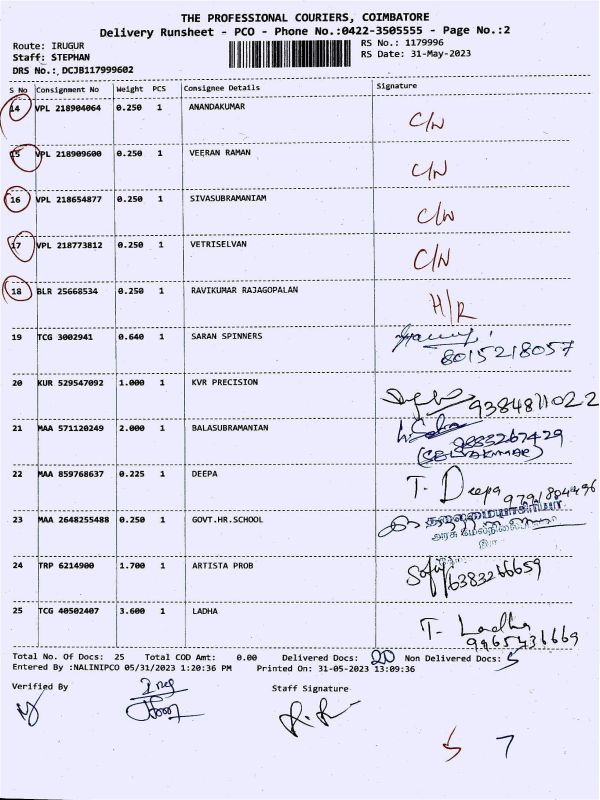 THE PROFESSIONAL COURIERS, COIMBATORE
Delivery Runsheet - PCO - Phone No.:0422-3505555 - Page No.:2
Route: IRUGUR
RS No.: 1179996
Staff: STEPHAN
RS Date: 31-May-2023
DRS No.: DCJB117999602
S No Consignment No Weight PCS Consignee Details Signature
14 VPL 218904064 0.250 1 ANANDAKUMAR C/N
15 VPL 218909600 0.250 1 VEERAN RAMAN C/N
16 VPL 218654877 0.250 1 SIVASUBRAMANIAM C/N
17 VPL 218773812 0.250 1 VETRISELVAN C/N
18 BLR 25668534 0.250 1 RAVIKUMAR RAJAGOPALAN H/R
19 TCG 3002941 0.640 1 SARAN SPINNERS
8015218057
20 KUR 529547092 1.000 1 KVR PRECISION 9384811022
21 MAA 571120249 2.000 1 BALASUBRAMANIAN
22 MAA 859768637 0.225 1 DEEPA T. Deepa
23 MAA 2648255488 0.250 1 GOVT.HR.SCHOOL தலைமையாசிரியர்
24 TRP 6214900 1.700 1 ARTISTA PROB 6383266659
25 TCG 40502407 3.600 1 LADHA T. Ladha
9965436669
Total No. Of Docs: 25 Total COD Amt: 0.00 Delivered Docs: 20 Non Delivered Docs: 5
Entered By :NALINIPCO 05/31/2023 1:20:36 PM Printed On: 31-05-2023 13:09:36
Verified By Staff Signature
5 7